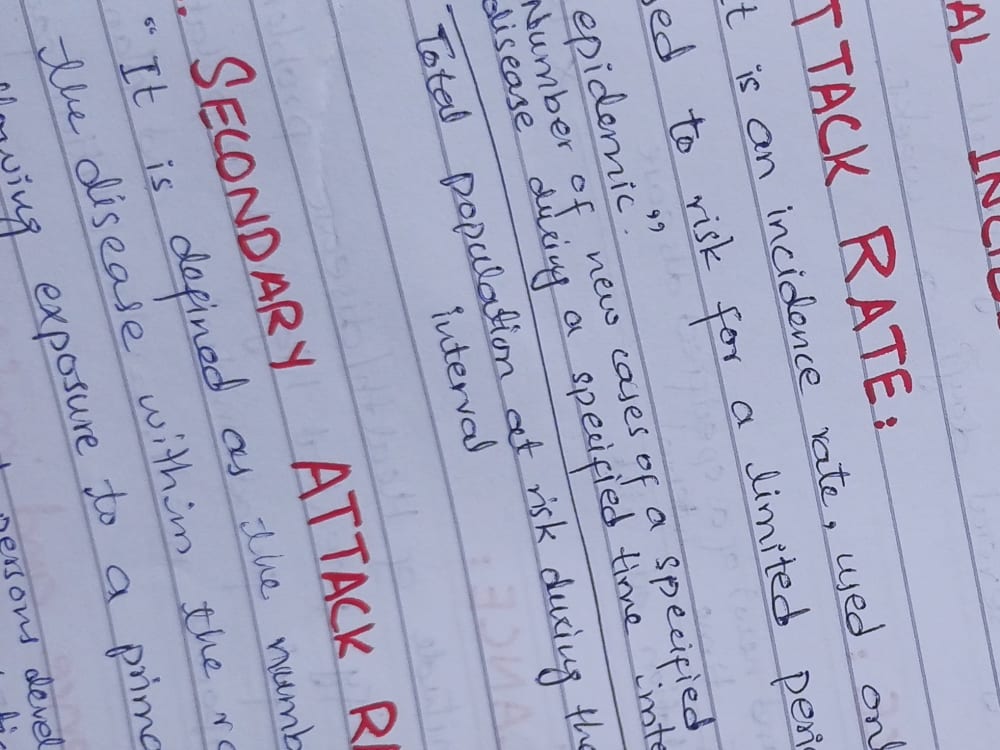 AL INCI
TTACK RATE:
t is an incidence rate, used onl
sed to risk for a limited peri
epidemic.”
Number of new cases of a specified
disease during a specified time inte
Total population at risk during the
interval
. SECONDARY ATTACK RA
“It is defined as the numb
the disease within the r
llowing exposure to a prima
persons devel